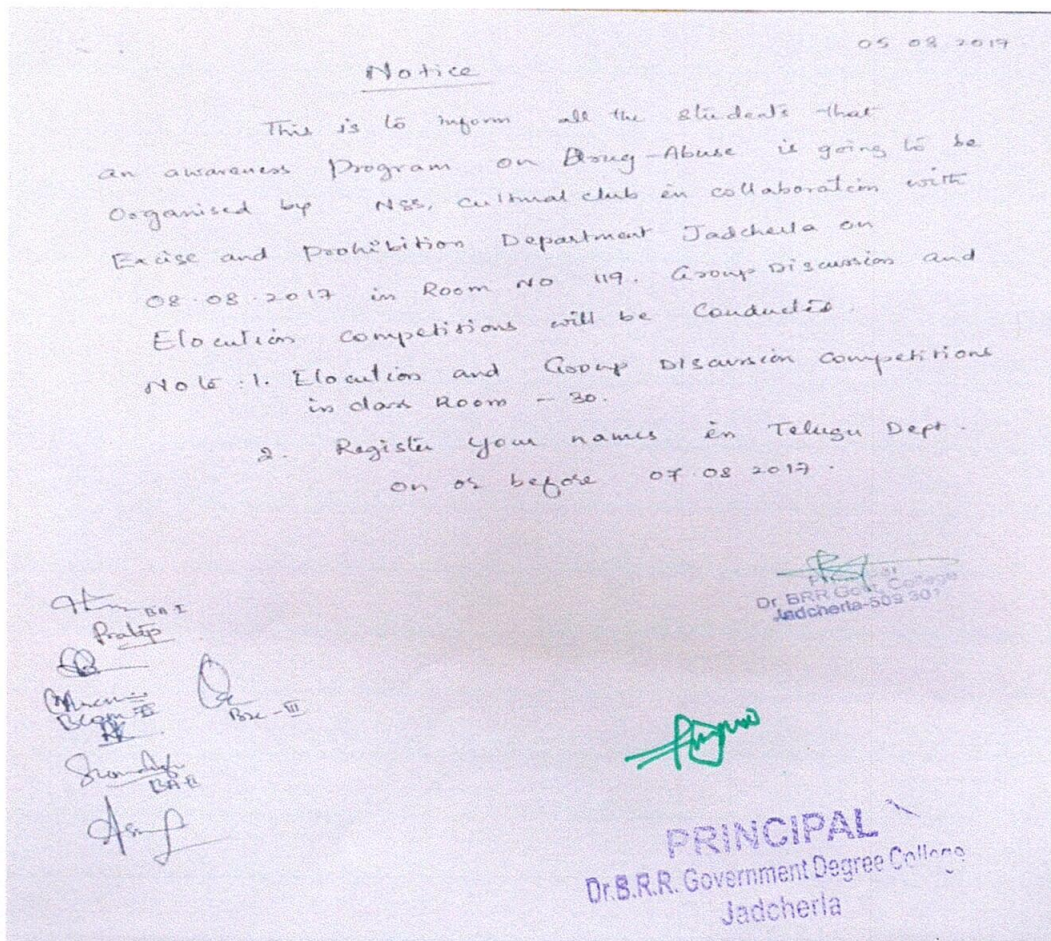 05 08 2017
Notice
This is to inform all the students that
an awareness Program on Drug-Abuse is going to be
Organised by NSS, cultural club in collaboration with
Excise and Prohibition Department Jadcherla on
08.08.2017 in Room No 119. Group Discussion and
Elocution competitions will be Conducted.
Note : 1. Elocution and Group Discussion Competitions
in class Room - 30.
2. Register your names in Telugu Dept.
on or before 07.08 2017.
Dr. BRR Govt. College
Jadcherla-509 301
BA I
Pratap
BCom-II
BSc-III
BA-II
PRINCIPAL
Dr.B.R.R. Government Degree College
Jadcherla